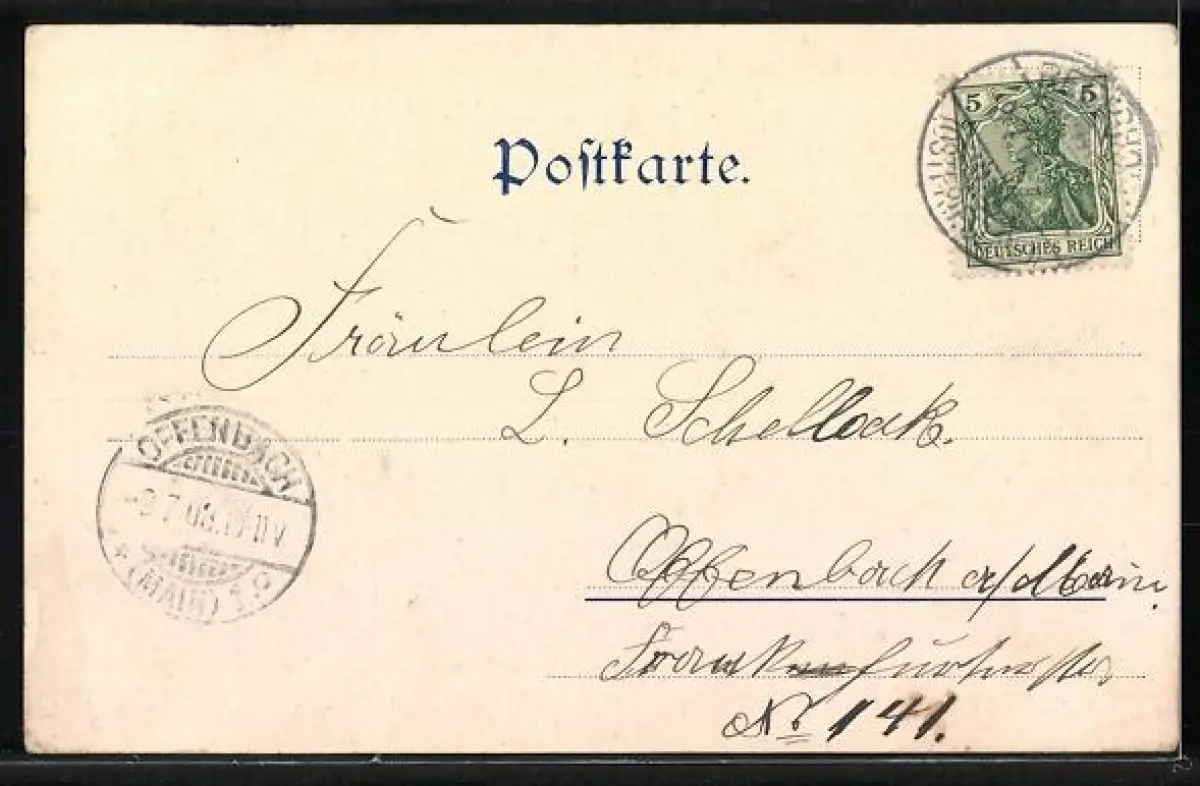 Postkarte.
5 5
DEUTSCHES REICH
Fräulein
L. Schellack.
OFFENBACH
9.7.03. 11V
* (MAIN) 1. *
Offenbach a/Main.
Frankfurterstr
No 141.